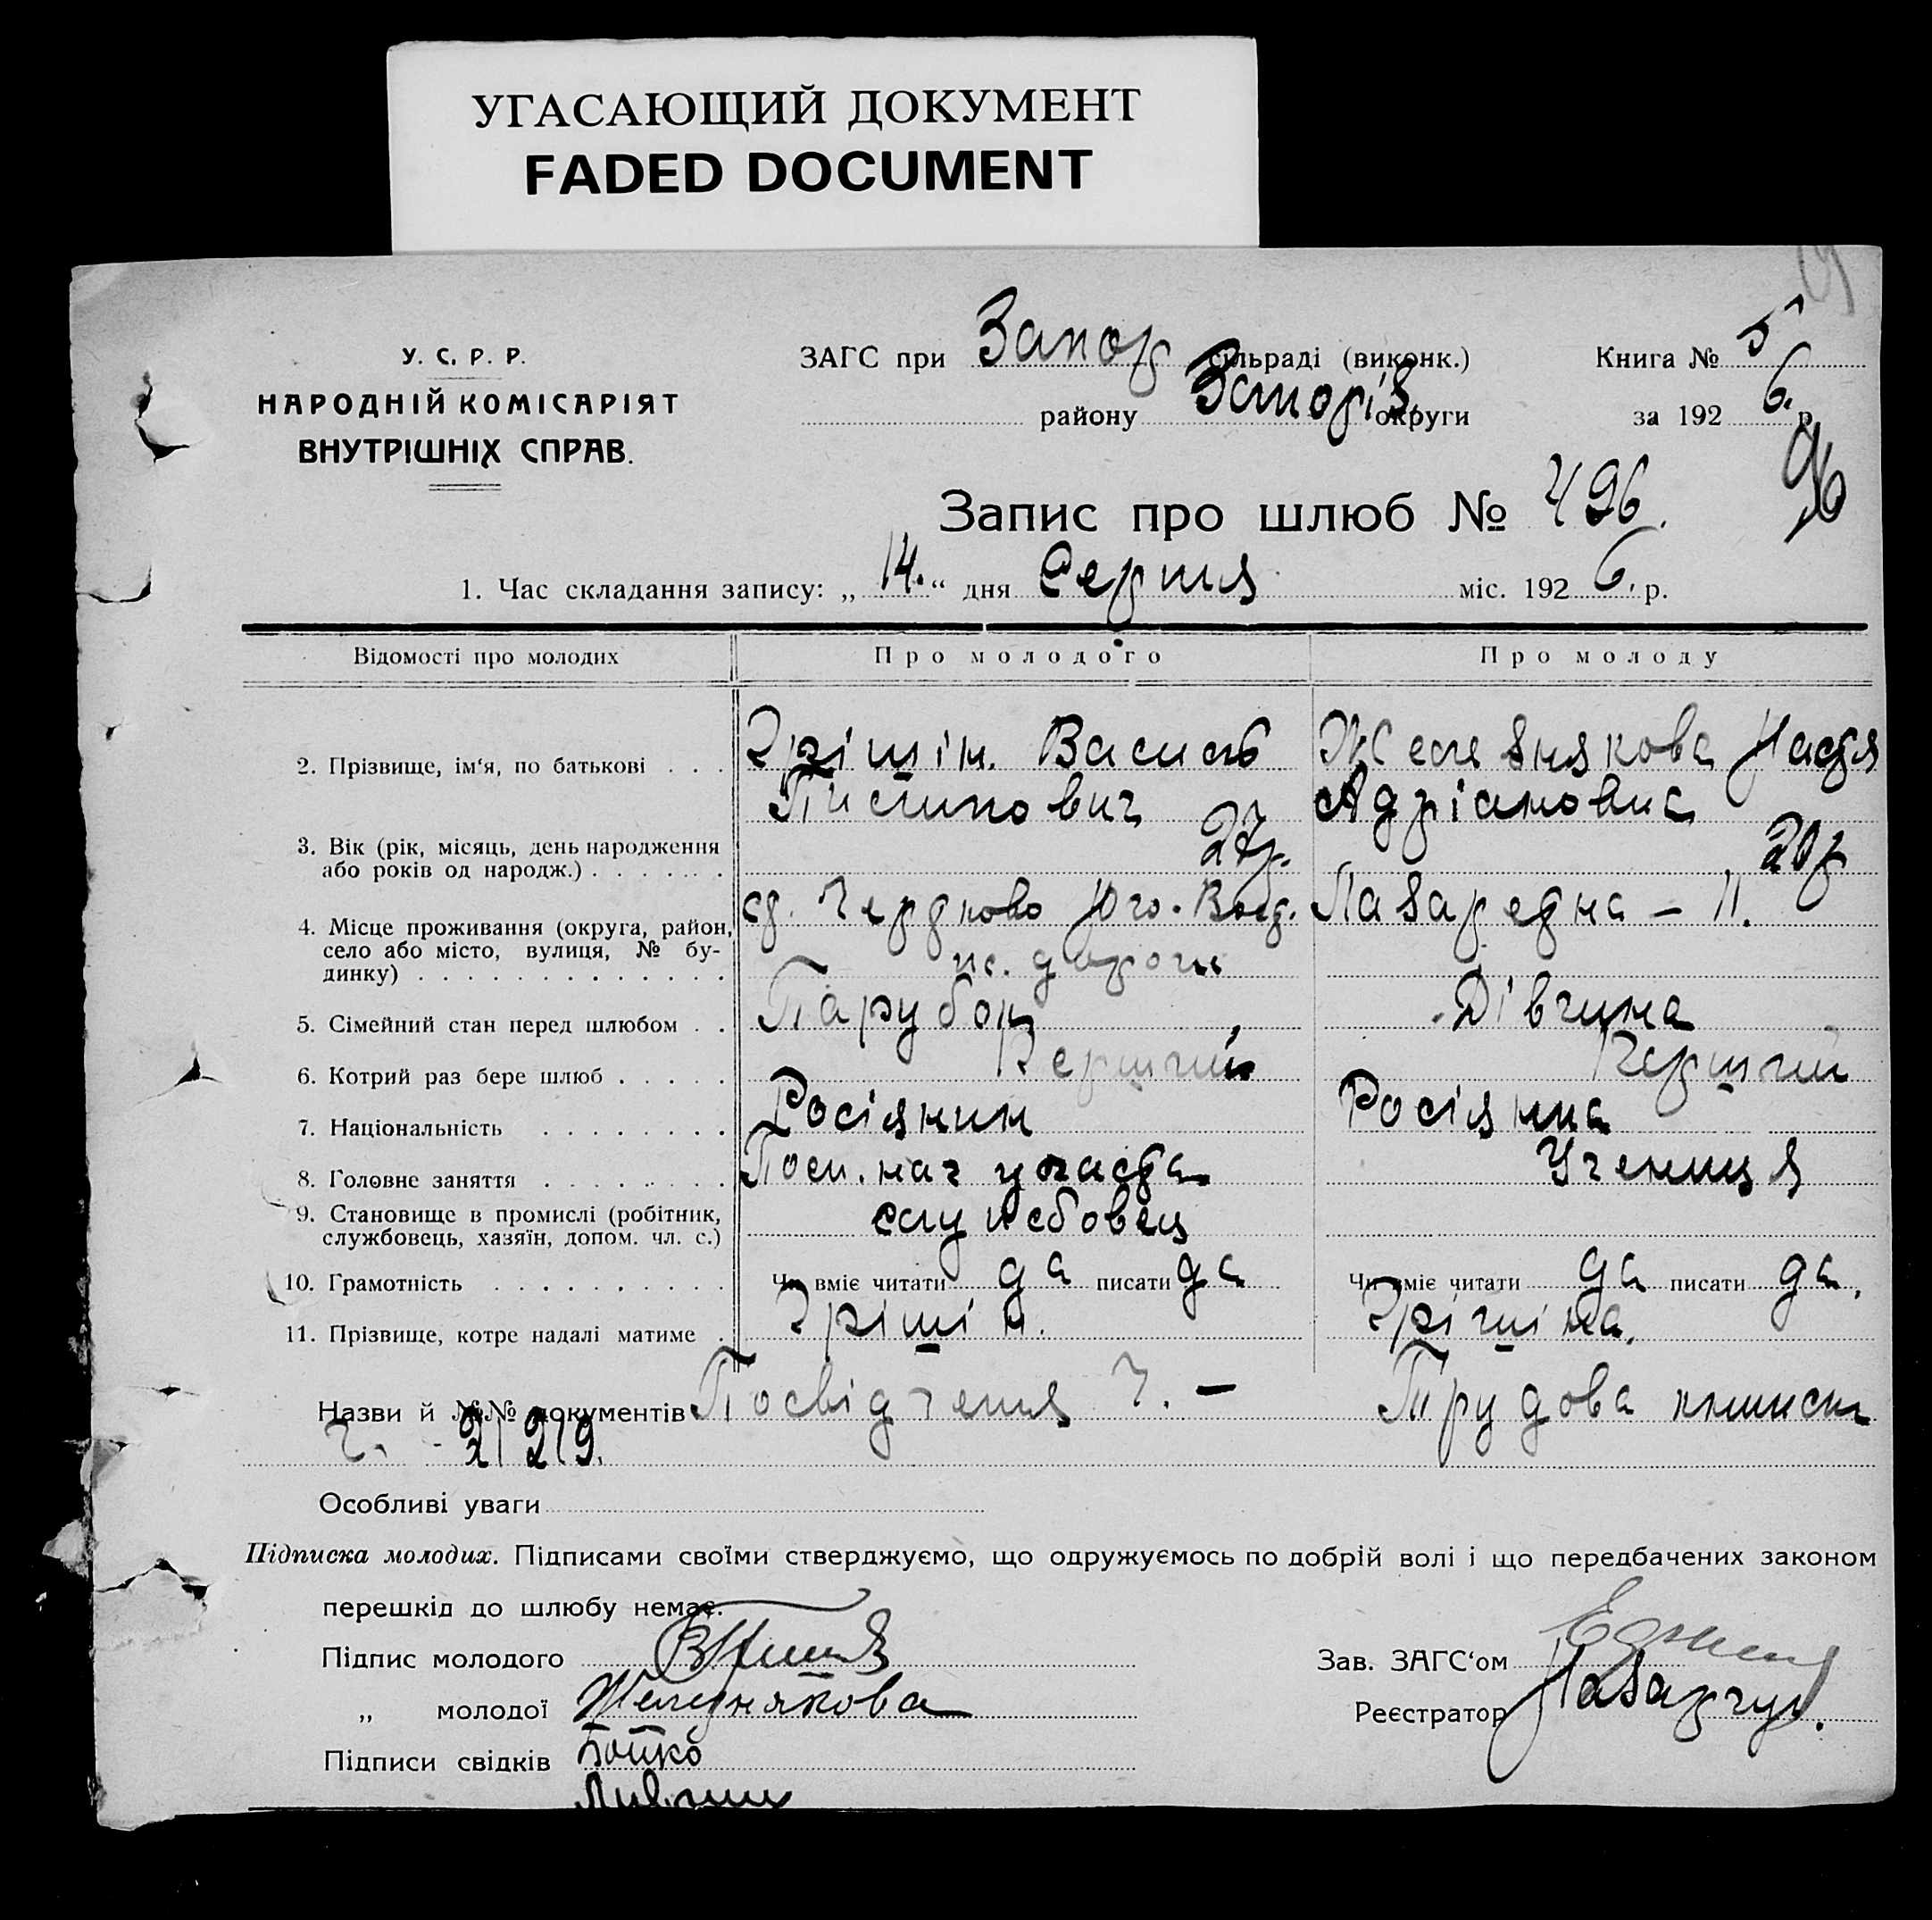 УГАСАЮЩИЙ ДОКУМЕНТ
FADED DOCUMENT
У. С. Р. Р.
НАРОДНІЙ КОМІСАРІЯТ
ВНУТРІШНІХ СПРАВ.
ЗАГС при Запор сільраді (виконк.)
району Запоріз. округи
Книга № 5
за 192 6. р.
96
Запис про шлюб № 496.
1. Час складання запису: „ 14. “ дня Серпня міс. 192 6. р.
Відомості про молодих Про молодого Про молоду
2. Прізвище, ім‘я, по батькові . . . Грішін. Василь Железнякова Настя
Адріановна
3. Вік (рік, місяць, день народження 27р. 20р
або років од народж.) . . . . . .
4. Місце проживання (округа, район, ст. Чертково Юго-Вост. Лазаретна – 11.
село або місто, вулиця, № бу-
динку) . . . . . . . . . . . . . ж. дороги
5. Сімейний стан перед шлюбом . . Парубок Дівчина
6. Котрий раз бере шлюб . . . . . Перший Перший
7. Національність . . . . . . . . Росіянин Росіянка
8. Головне заняття . . . . . . . . Пом. нач участка Учениця
9. Становище в промислі (робітник, службовець
службовець, хазяїн, допом. чл. с.)
10. Грамотність . . . . . . . . . Чи вміє читати да писати да Чи вміє читати да писати да.
11. Прізвище, котре надалі матиме . Грішін. Грішіна.
Назви й №№ документів Посвідчення Ч. – Трудова книжка
ч. 21219.
Особливі уваги
Підписка молодих. Підписами своїми стверджуємо, що одружуємось по добрій волі і що передбачених законом
перешкід до шлюбу немає.
Підпис молодого
Зав. ЗАГС‘ом
„ молодої Железнякова
Реєстратор
Підписи свідків Бойко